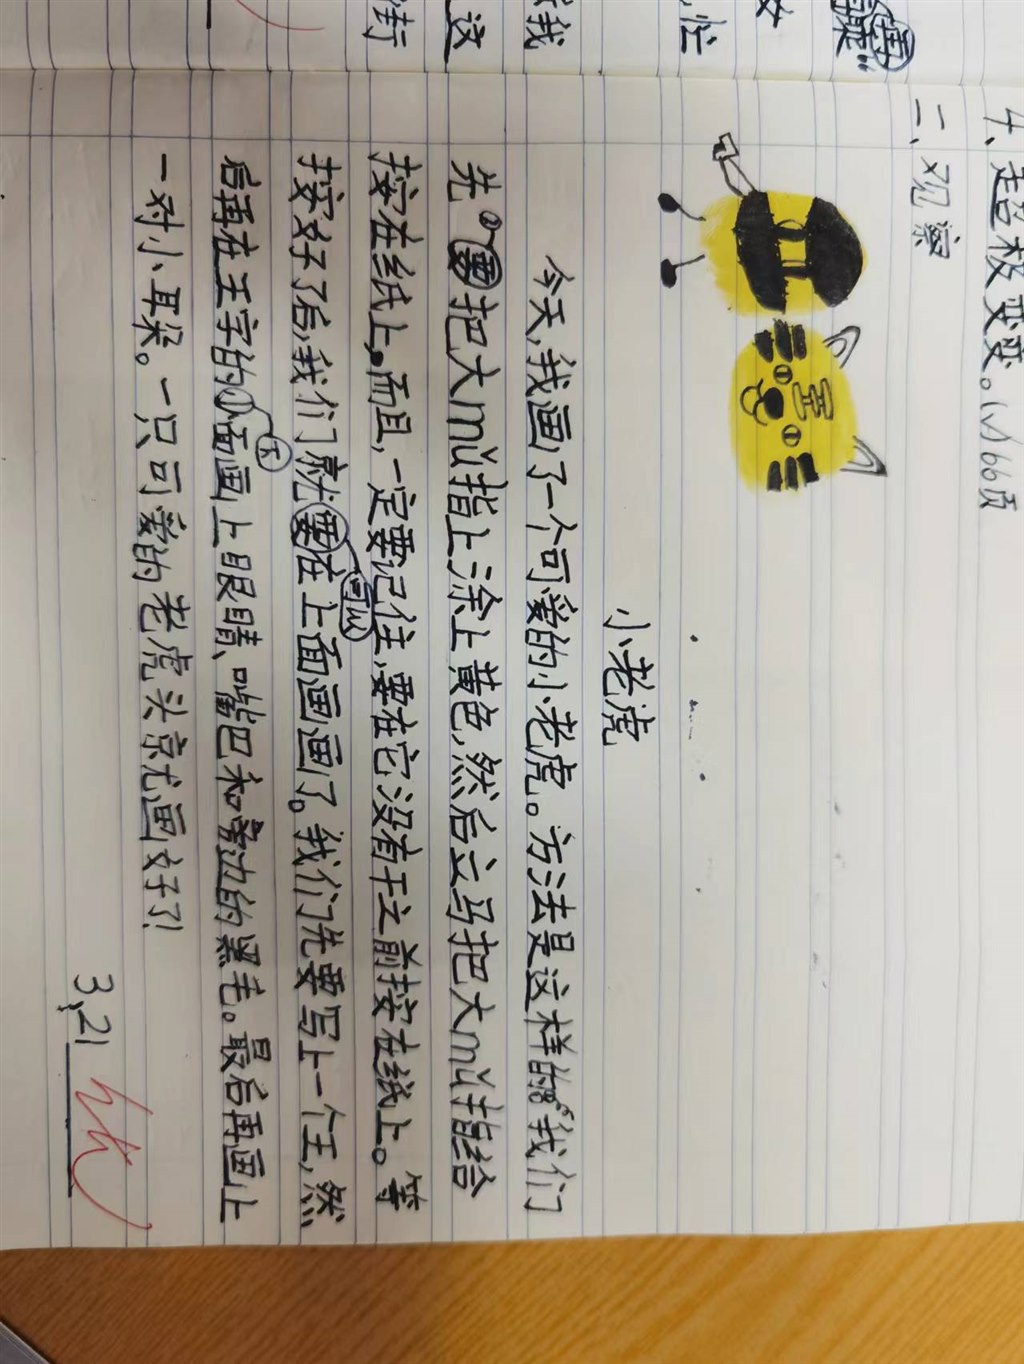 这
我
忙
女
4、超极变变。(√)66页
二、观察
王
小老虎
今天,我画了一个可爱的小老虎。方法是这样的:“我们
先要把大mǔ指上涂上黄色,然后立马把大mǔ指给
按在纸上。而且,一定要记住,要在它没有干之前按在纸上。等
按好了后,我们就要可以在上面画画了。我们先要写上一个王,然
后再在王字的下面画上眼睛、嘴巴和旁边的黑毛。最后再画上
一对小耳朵。一只可爱的老虎头就画好了!
3,21